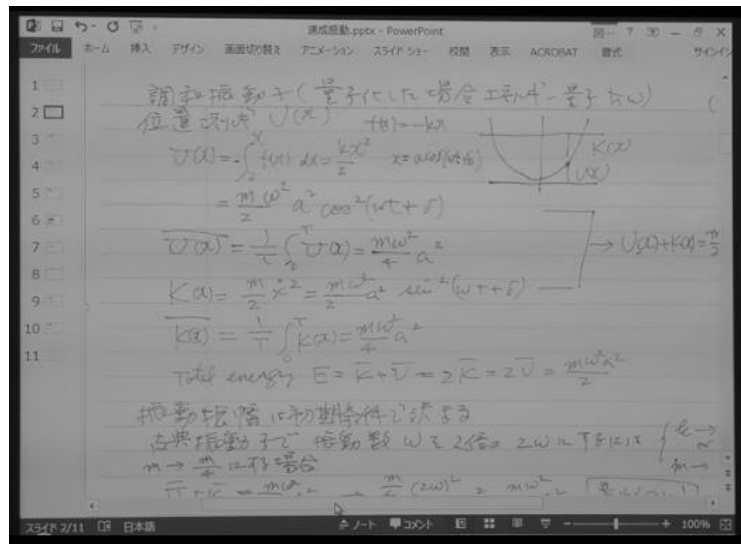 連成振動.pptx - PowerPoint
ファイル ホーム 挿入 デザイン 画面切り替え アニメーション スライド ショー 校閲 表示 ACROBAT 書式 サインイン
1
2
3
4
5
6
7
8
9
10
11
調和振動子(量子化した場合エネルギー量子 ħω)
位置エネルギ U(x) f(x)=-kx
U(x)=-∫ f(x) dx = kx²/2 x=a cos(ωt+δ)
K(x)
U(x)
= mω²/2 a² cos²(ωt+δ)
U(x)‾ = 1/T ∫₀ᵀ U(x) = mω²/4 a²
→ U(x)+K(x)=
K(x)= m/2 ẋ² = mω²/2 a² sin²(ωt+δ)
K(x)‾ = 1/T ∫₀ᵀ K(x) = mω²/4 a²
Total energy E = K‾+U‾ = 2K‾ = 2U‾ = mω²a²/2
振動振幅は初期条件で決まる
古典振動子で 振動数 ω を 2倍の 2ω にするには
m → m/4 にする場合
スライド 2/11 日本語 ノート コメント 100%